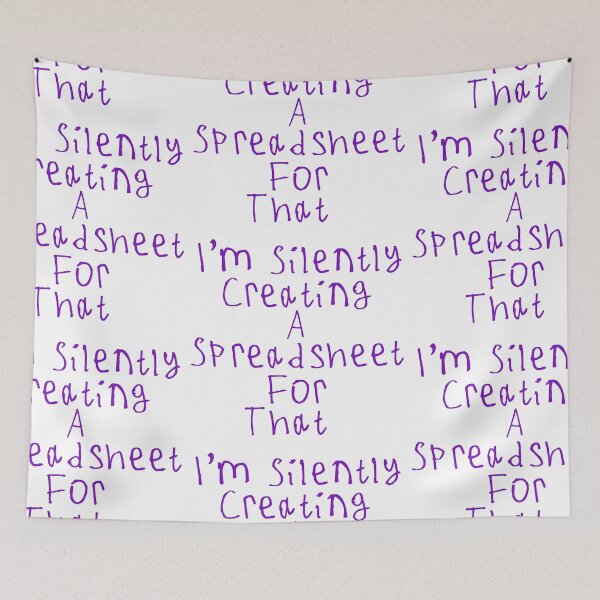 That
Silently
reating
A
eadsheet
For
That
Silently
reating
A
eadsheet
For
That
Creating
A
Spreadsheet
For
That
I'm Silently
Creating
A
Spreadsheet
For
That
I'm Silently
Creating
That
I'm Silen
Creatin
A
Spreadsh
For
That
I'm Silen
Creatin
A
Spreadsh
For